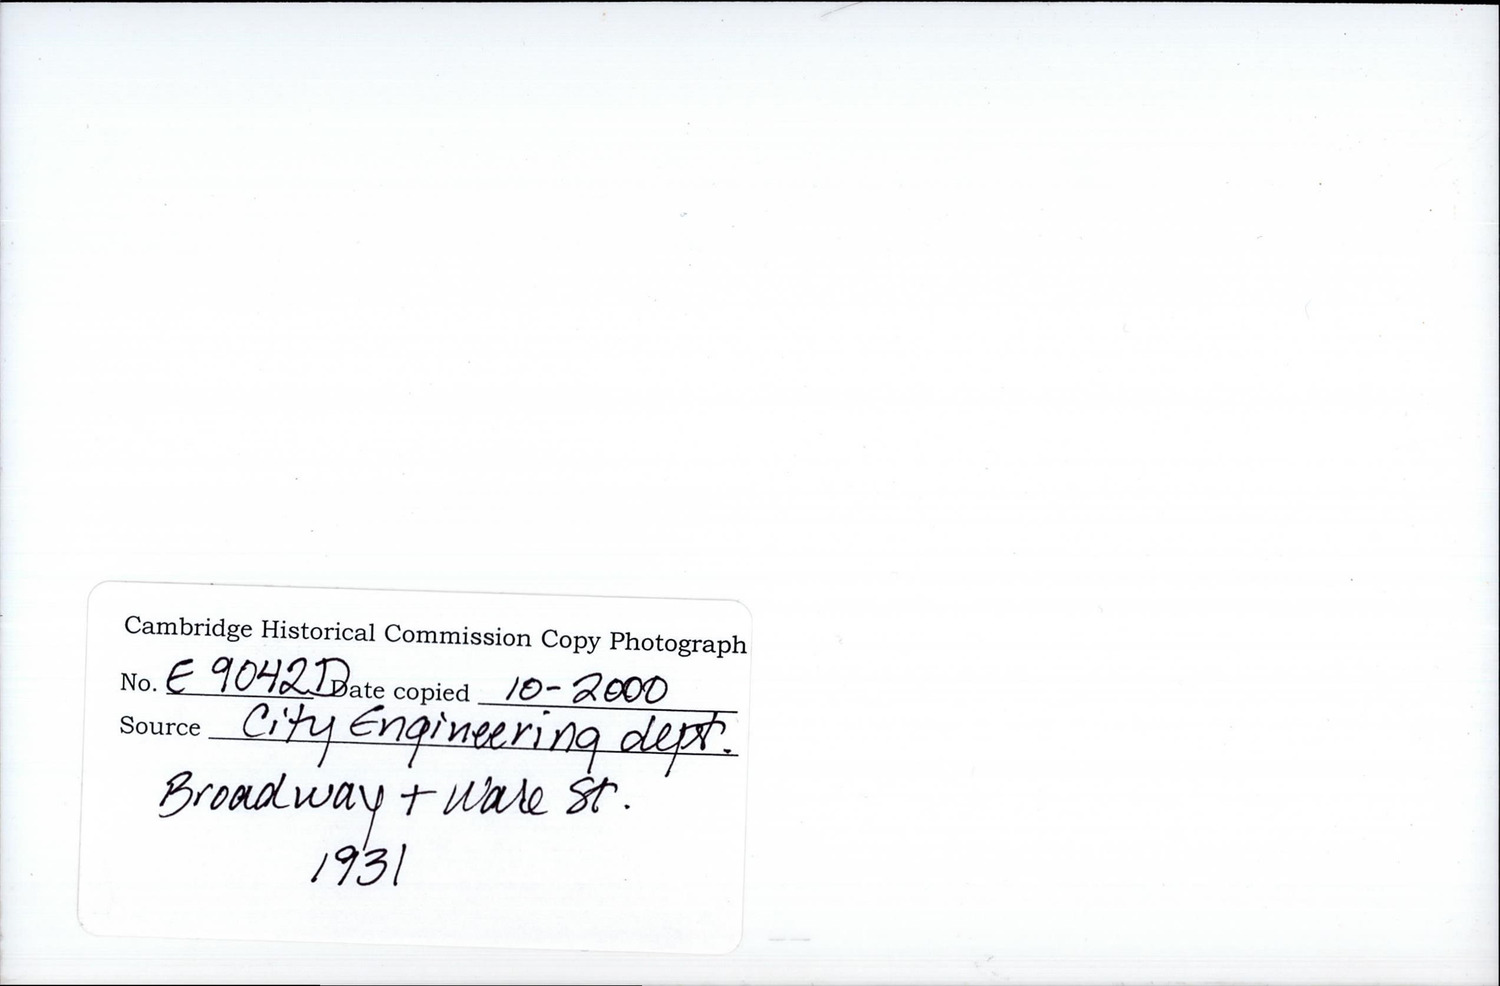 Cambridge Historical Commission Copy Photograph
No. E 9042D Date copied 10-2000
Source City Engineering dept.
Broadway + Ware St.
1931